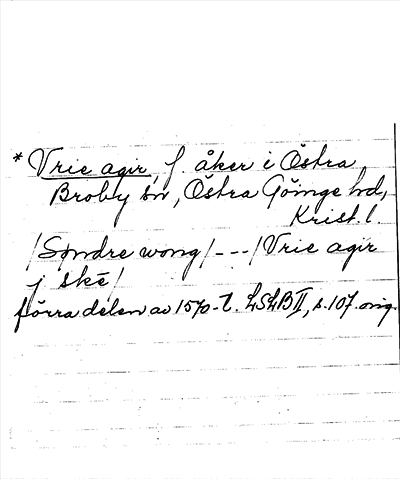 * Vrie agir, f. åker i Östra
Broby sn, Östra Göinge hd,
Krist. l.
/Søndre wong/---/Vrie agir
j ske/
förra delen av 1570-t. LSLB II, s. 107. orig.